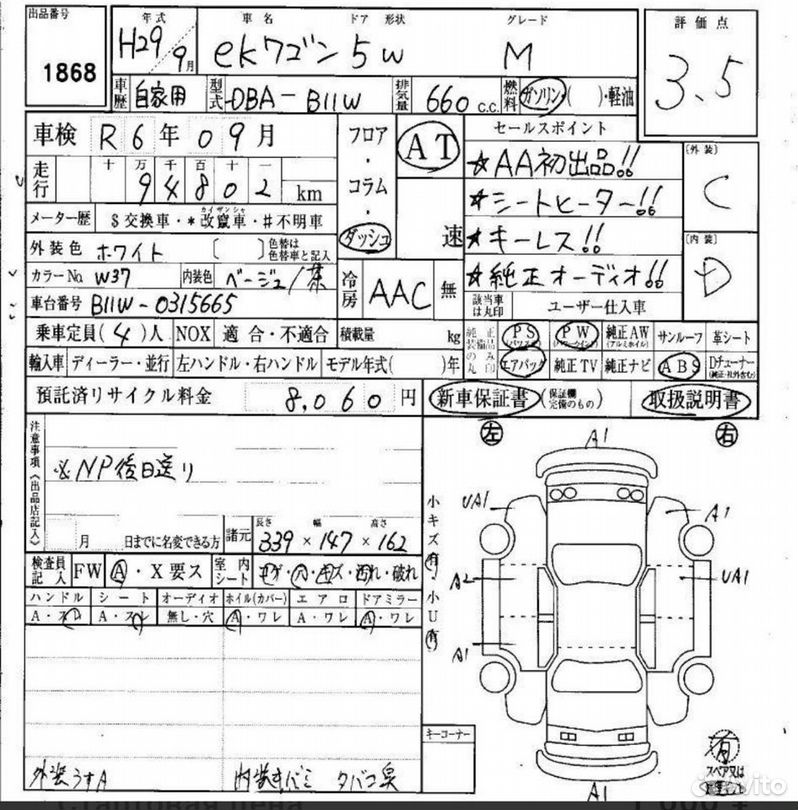 出品番号
1868
年式 車名 ドア 形状 グレード
H29/9月 ekワゴン 5W M
評価点
3.5
車歴 自家用 型式 DBA-B11W 排気量 660 c.c. 燃料 ガソリン・( )・軽油
車検 R6年09月
フロア・コラム・ダッシュ
AT
速
セールスポイント
★AA初出品!!
★シートヒーター!!
★キーレス!!
★純正オーディオ!!
[外装]
C
[内装]
D
走行 十 万 千 百 十 一
94802 km
メーター歴 $交換車・*改竄車・#不明車
カイザンシャ
外装色 ホワイト [ ] 色替は色替車と記入
カラーNo W37 内装色 ベージュ/茶
冷房 AAC 無
該当車は丸印 ユーザー仕入車
車台番号 B11W-0315665
乗車定員(4)人 NOX 適合・不適合 積載量 kg
純正装備品のみ丸印 PS(パワステ) PW(パワーウインド) 純正AW(アルミホイル) サンルーフ 革シート
輸入車 ディーラー・並行 左ハンドル・右ハンドル モデル年式( )年
エアバッグ 純正TV 純正ナビ ABS Dチューナー(純正・社外含む)
預託済リサイクル料金 8,060円
新車保証書(保証欄完備のもの) 取扱説明書
注意事項《出品店記入》
※NP後日送り
月 日までに名変できる方
諸元 長さ 幅 高さ
339×147×162
検査員記入 FW A・X要ス 室内シート コゲ・穴・キズ・汚れ・破れ
ハンドル シート オーディオ ホイル(カバー) エアロ ドアミラー
A・スレ A・スレ 無し・穴 A・ワレ A・ワレ A・ワレ
外装うすA 内装キバミ タバコ臭
小キズ(有)・小U(有)
左 右
A1
UA1 A1
A2 UA1
A1
A1
キーコーナー
有
スペア又は
Avito